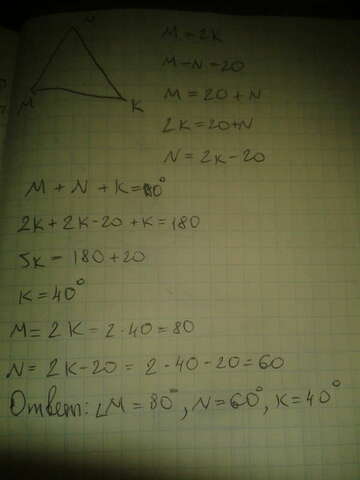 N
M = 2K
M - N = 20
M = 20 + N
2K = 20+N
N = 2K - 20
M
K
M + N + K = 180°
2K + 2K - 20 + K = 180
5K = 180 + 20
K = 40°
M = 2K = 2 · 40 = 80
N = 2K - 20 = 2 · 40 - 20 = 60
Ответ: ∠M = 80°, N = 60°, K = 40°